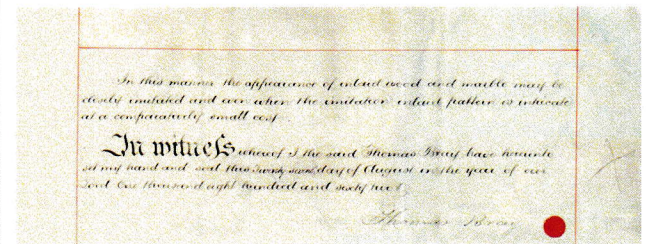 In this manner the appearance of inlaid wood and marble may be
closely imitated and even when the imitation inlaid pattern is intricate
at a comparatively small cost.
In witness whereof I the said Thomas Bray have hereunto
set my hand and seal this twenty second day of August in the year of our
Lord One thousand eight hundred and sixty two.
Thomas Bray